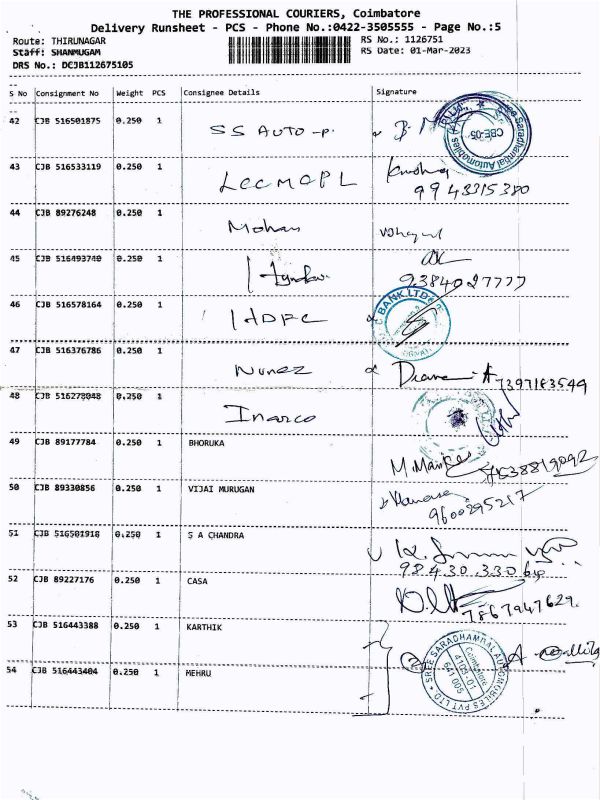 THE PROFESSIONAL COURIERS, Coimbatore
Delivery Runsheet - PCS - Phone No.:0422-3505555 - Page No.:5
Route: THIRUNAGAR RS No.: 1126751
Staff: SHANMUGAM RS Date: 01-Mar-2023
DRS No.: DCJB112675105
S No Consignment No Weight PCS Consignee Details Signature
42 CJB 516501875 0.250 1 SS AUTO -P.
CBE-05
43 CJB 516533119 0.250 1 LECMOPL
9943315380
44 CJB 89276248 0.250 1 Mohan
45 CJB 516493740 0.250 1
9384027777
46 CJB 516578164 0.250 1 HDFC
BANK LTD
47 CJB 516376786 0.250 1 Nunez
7397183549
48 CJB 516278048 0.250 1 Inarco
49 CJB 89177784 0.250 1 BHORUKA
50 CJB 89330856 0.250 1 VIJAI MURUGAN
9600295217
51 CJB 516501918 0.250 1 S A CHANDRA
52 CJB 89227176 0.250 1 CASA
7867947629
53 CJB 516443388 0.250 1 KARTHIK
SREE SARADHAMBAL AUTOMOBILES PVT LTD
Coimbatore
641 005
54 CJB 516443404 0.250 1 MEHRU